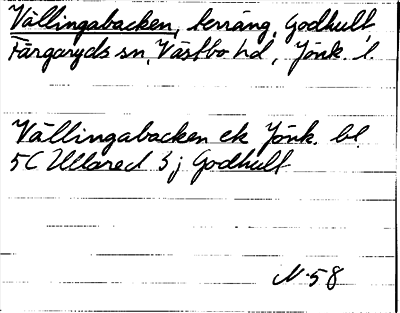 Vällingabacken, terräng, Godhult,
Färgaryds sn, Västbo hd, Jönk. l.
Vällingabacken ek Jönk. bl.
5C Ullared 3 j Godhult
N.58